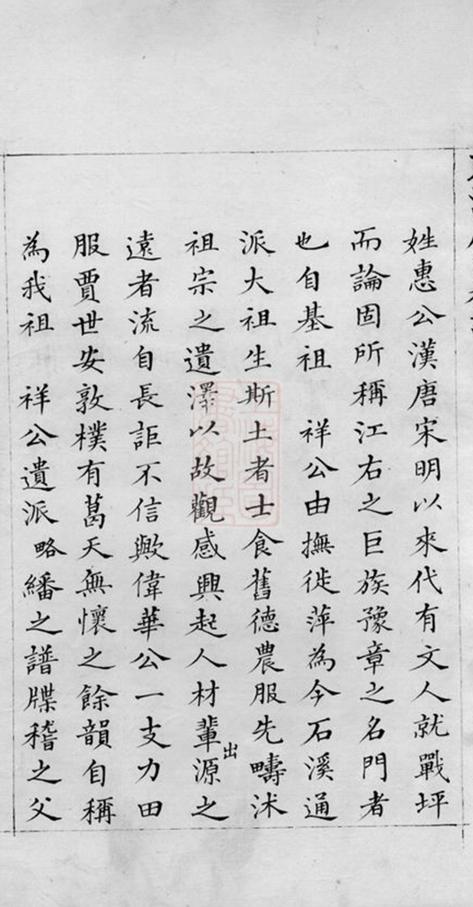 姓惠公漢唐宋明以來代有文人就戰坪
而論固所稱江右之巨族豫章之名門者
也自基祖　祥公由撫徙萍為今石溪通
派大祖生斯土者士食舊德農服先疇沭
祖宗之遺澤以故觀感興起人材輩出源之
遠者流自長詎不信歟偉華公一支力田
服賈世安敦樸有葛天無懷之餘韻自稱
為我祖　祥公遺派略繙之譜牒稽之父